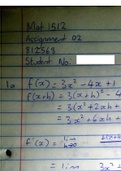 Mat 1512
Assignment 02
812568
Student No:
1a f(x) = 3x² - 4x + 1
f(x+h) = 3(x+h)² - 4
= 3(x² + 2xh +
= 3x² + 6xh +
f'(x) = lim
h→0
= lim 3x²